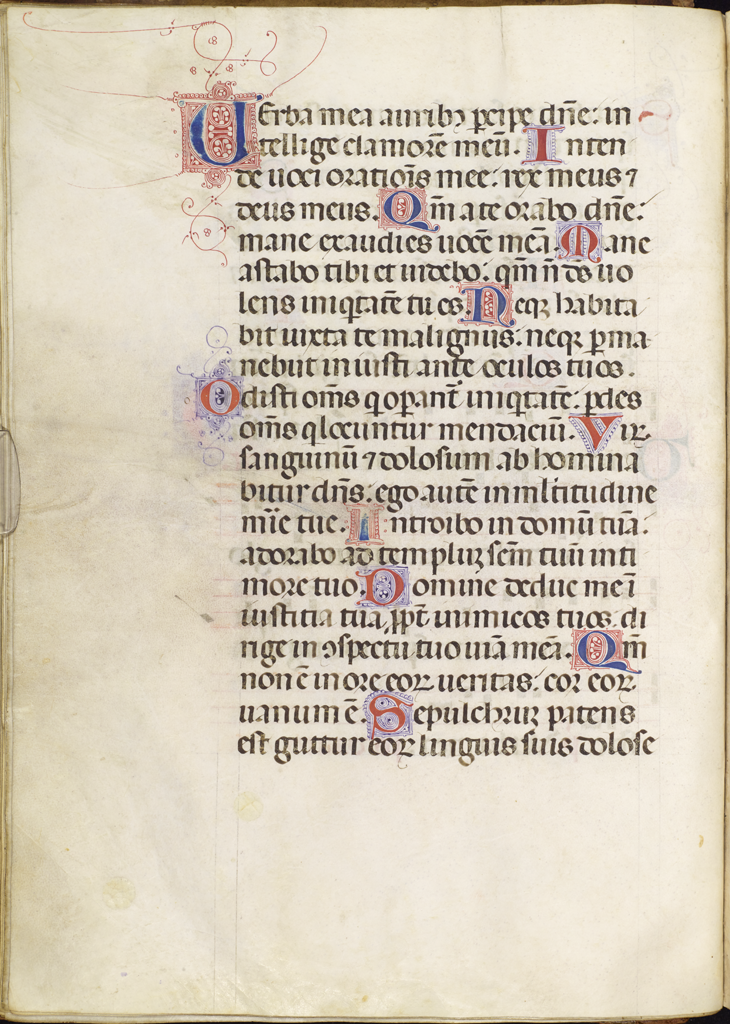 UErba mea auribꝰ ꝑcipe dñe: in
tellige clamorē meū. Inten
de uoci oratiōis mee: rex meus ⁊
deus meus. Qm̄ a te orabo dñe:
mane exaudies uocē meā. Mane
astabo tibi et uidebo: qm̄ n̄ dš uo
lens iniq̇tatē tu es. Neqꝫ habita
bit iuxta te malignus: neqꝫ ꝑma
nebūt iniusti ante oculos tuos.
Odisti om̄s q̇ oꝑant̄ iniq̇tatē: ꝑdes
om̄s q̇ locuntur mendaciū. Vir
sanguinū ⁊ dolosum abhomina
bitur dñs: ego autē in ml̄titudine
mīe tue. Introibo in domū tuā:
adorabo ad templuꝫ sc̄m tuū in ti
more tuo. Domine deduc me ī
iustitia tua ꝓpt̄ inimicos tuos: di
rige in ꝯspectu tuo uiā meā. Qm̄
non ē in ore eoꝝ ueritas: cor eoꝝ
uanum ē. Sepulchruꝫ patens
est guttur eoꝝ linguis suis dolose